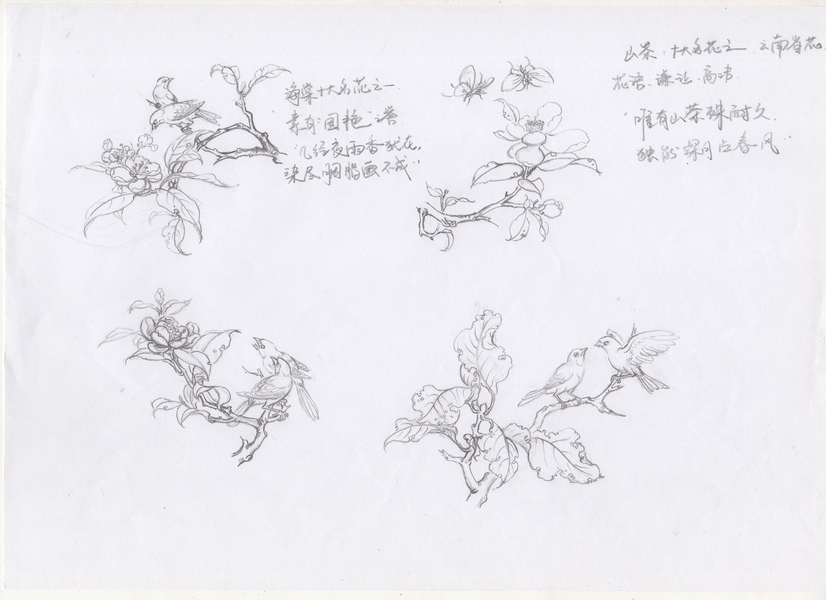 海棠十大名花之一
素有"国艳"之誉
"几经夜雨香犹在,
染尽胭脂画不成"
山茶:十大名花之一 云南省花
花语:谦让、高洁
"唯有山茶殊耐久
独能深月占春风"